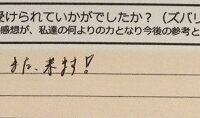 受けられていかがでしたか？（ズバリ
感想が、私達の何よりの力となり今後の参考と
また、来ます！